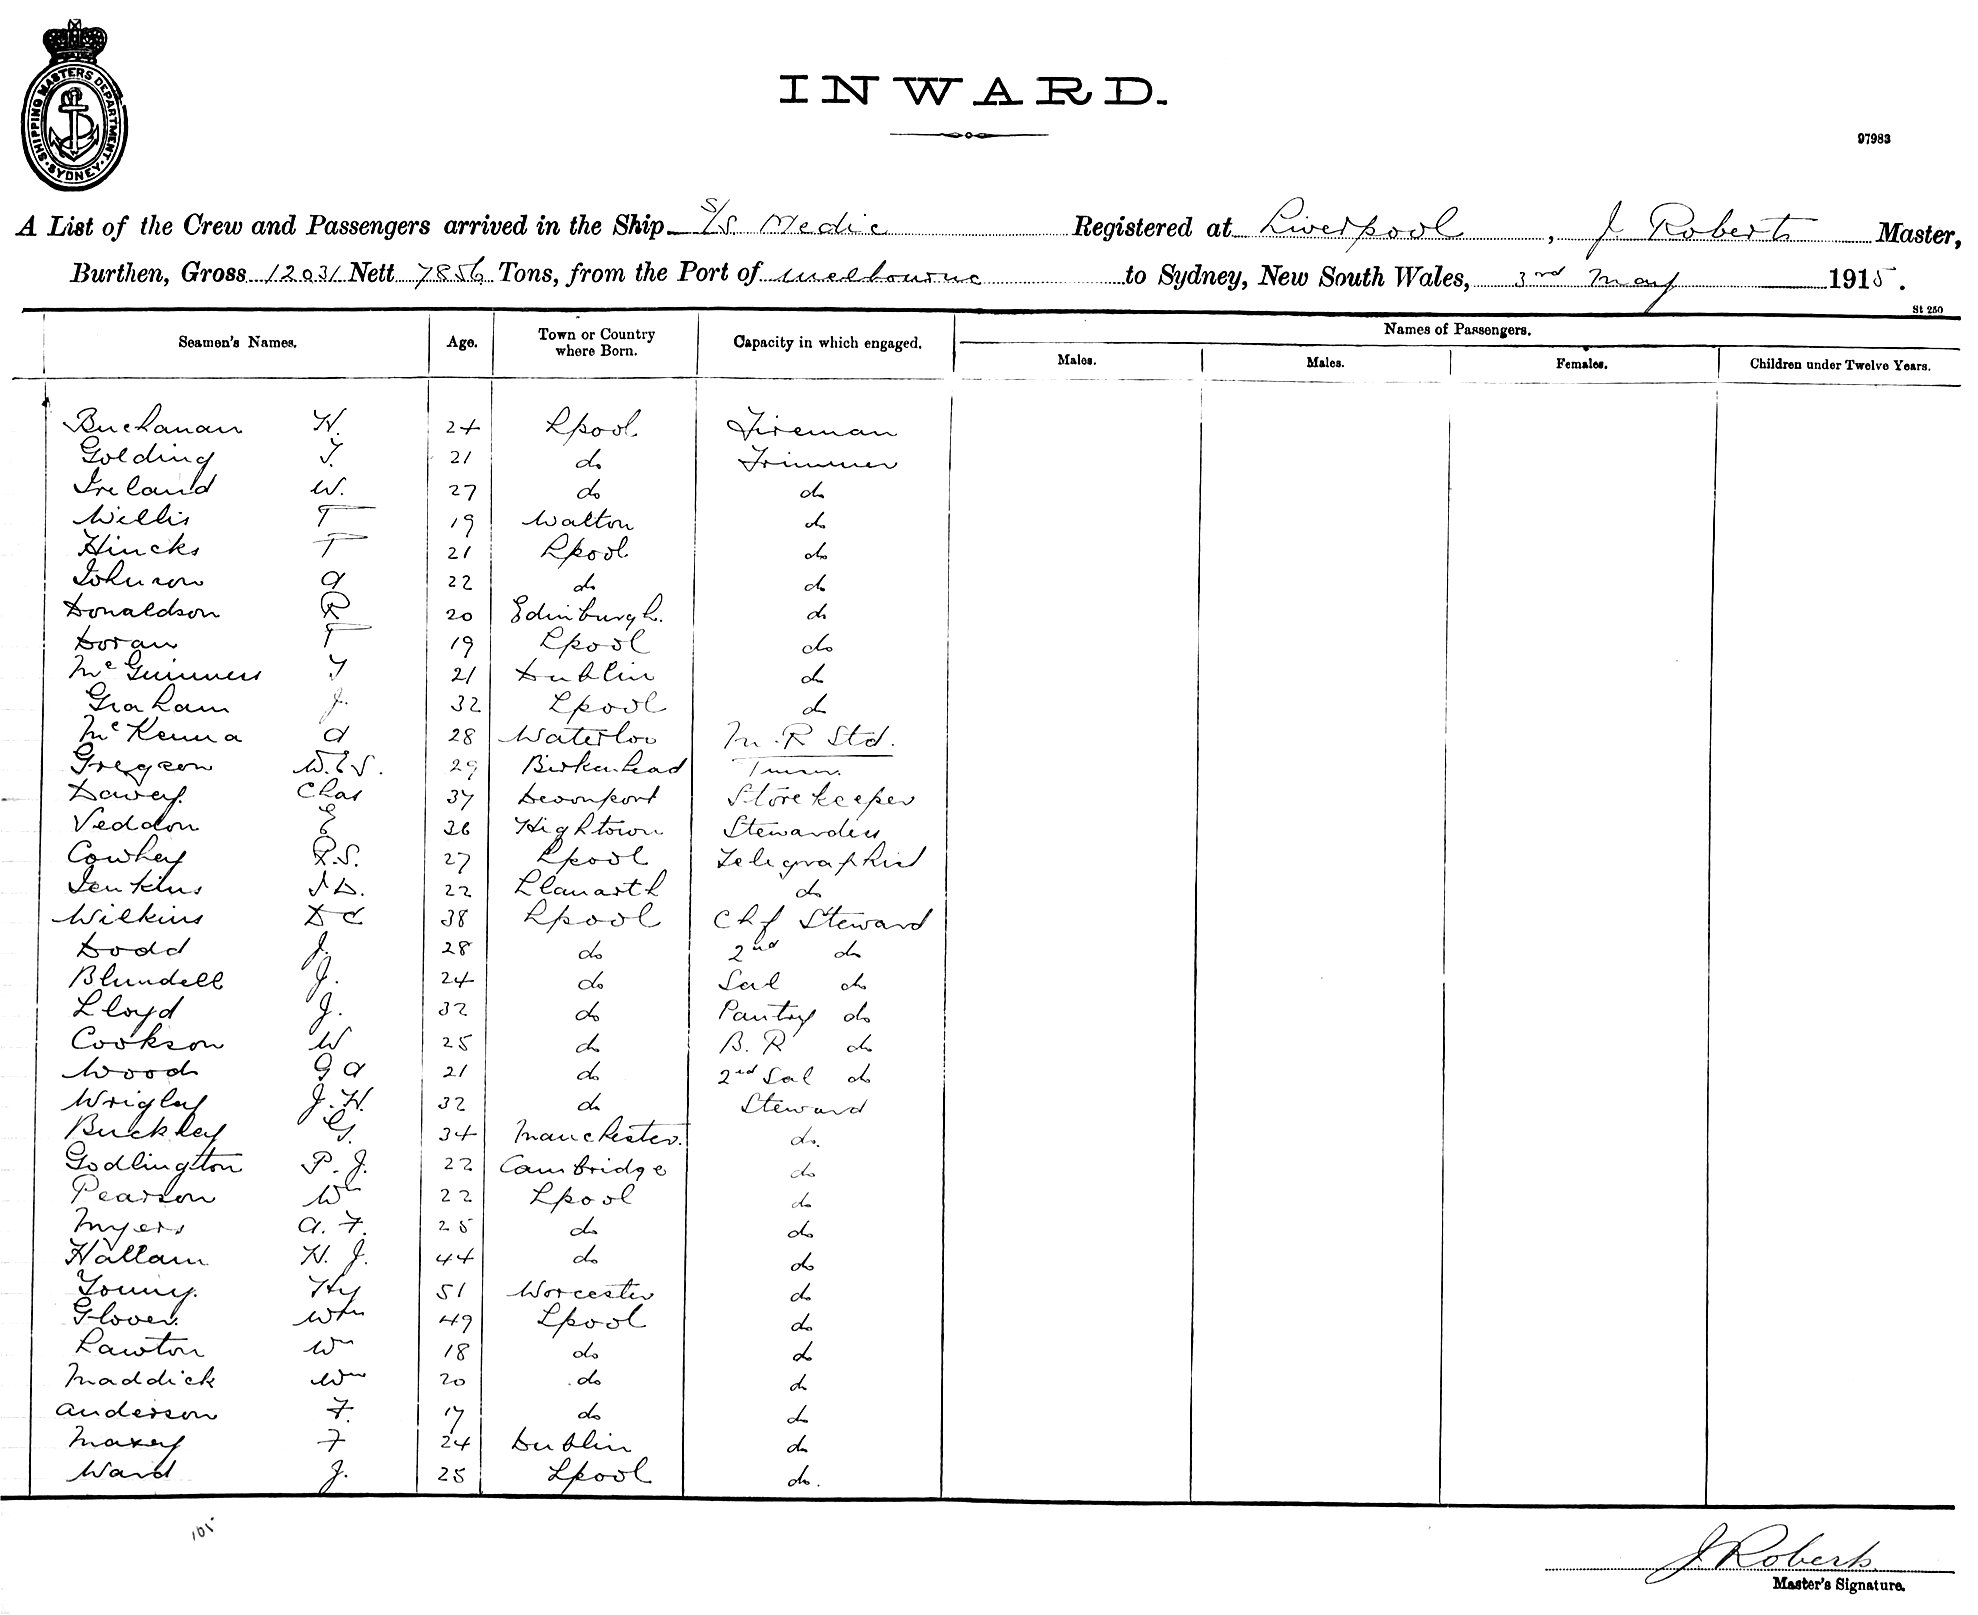 SHIPPING MASTERS DEPARTMENT. SYDNEY
INWARD.
97983
A List of the Crew and Passengers arrived in the Ship S/S Medic Registered at Liverpool, J Roberts Master,
Burthen, Gross 12031 Nett 7856 Tons, from the Port of Melbourne to Sydney, New South Wales, 3rd May 1915.
St 250
Seamen's Names. Age. Town or Country where Born. Capacity in which engaged. Names of Passengers.
Males. Males. Females. Children under Twelve Years.
Buchanan H. 24 Lpool Fireman
Golding T. 21 do Trimmer
Ireland W. 27 do do
Willis T 19 Walton do
Hincks T 21 Lpool do
Johnson A 22 do do
Donaldson R 20 Edinburgh. do
Doran T 19 Lpool do
McGuinness 21 Dublin do
Graham J. 32 Lpool do
McKenna A 28 Waterloo M.R Std.
Gregson 29 Birkenhead
Davey. Chas 37 Devonport Storekeeper
Veddon E 36 Hightown Stewardess
Cowhey R.S. 27 Lpool Telegraphist
Jenkins J D. 22 Llanarth do
Wilkins D C 38 Lpool Chf Steward
Dodd J. 28 do 2nd do
Blundell J. 24 do Sal do
Lloyd J. 32 do Pantry do
Cookson W 25 do B.R do
Wood G A 21 do 2nd Sal do
Wrigley J.H. 32 do Steward
Buckley G. 34 Manchester. do.
Godlington P.J. 22 Cambridge do
Pearson Wm 22 Lpool do
Myers A.F. 25 do do
Hallam H.J. 44 do do
Young. Hy 51 Worcester do
Glover. Wm 49 Lpool do
Lawton Wm 18 do do
Maddick Wm 20 do do
Anderson F. 17 do do
Maxey F 24 Dublin do
Ward J. 25 Lpool do.
105
J. Roberts
Master's Signature.